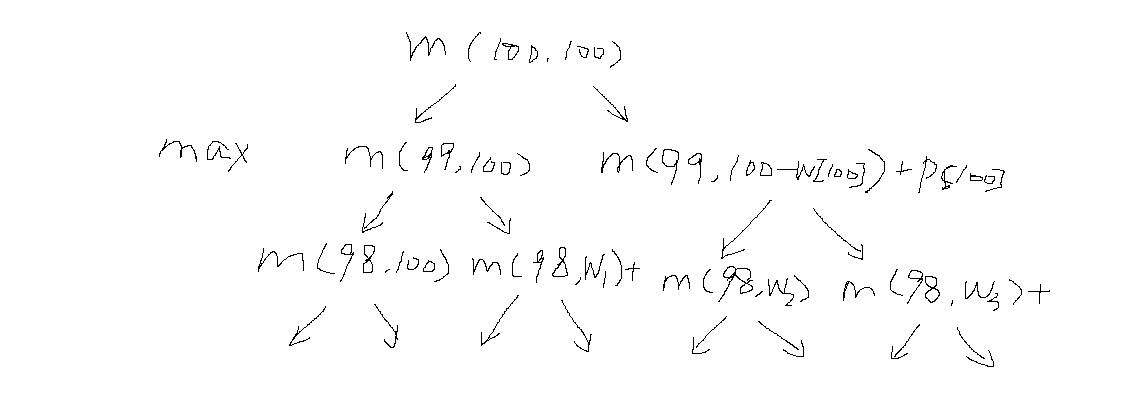 m(100,100)
max m(99,100) m(99,100-W[100])+P[100]
m(98,100) m(98,W₁)+ m(98,W₂) m(98,W₃)+